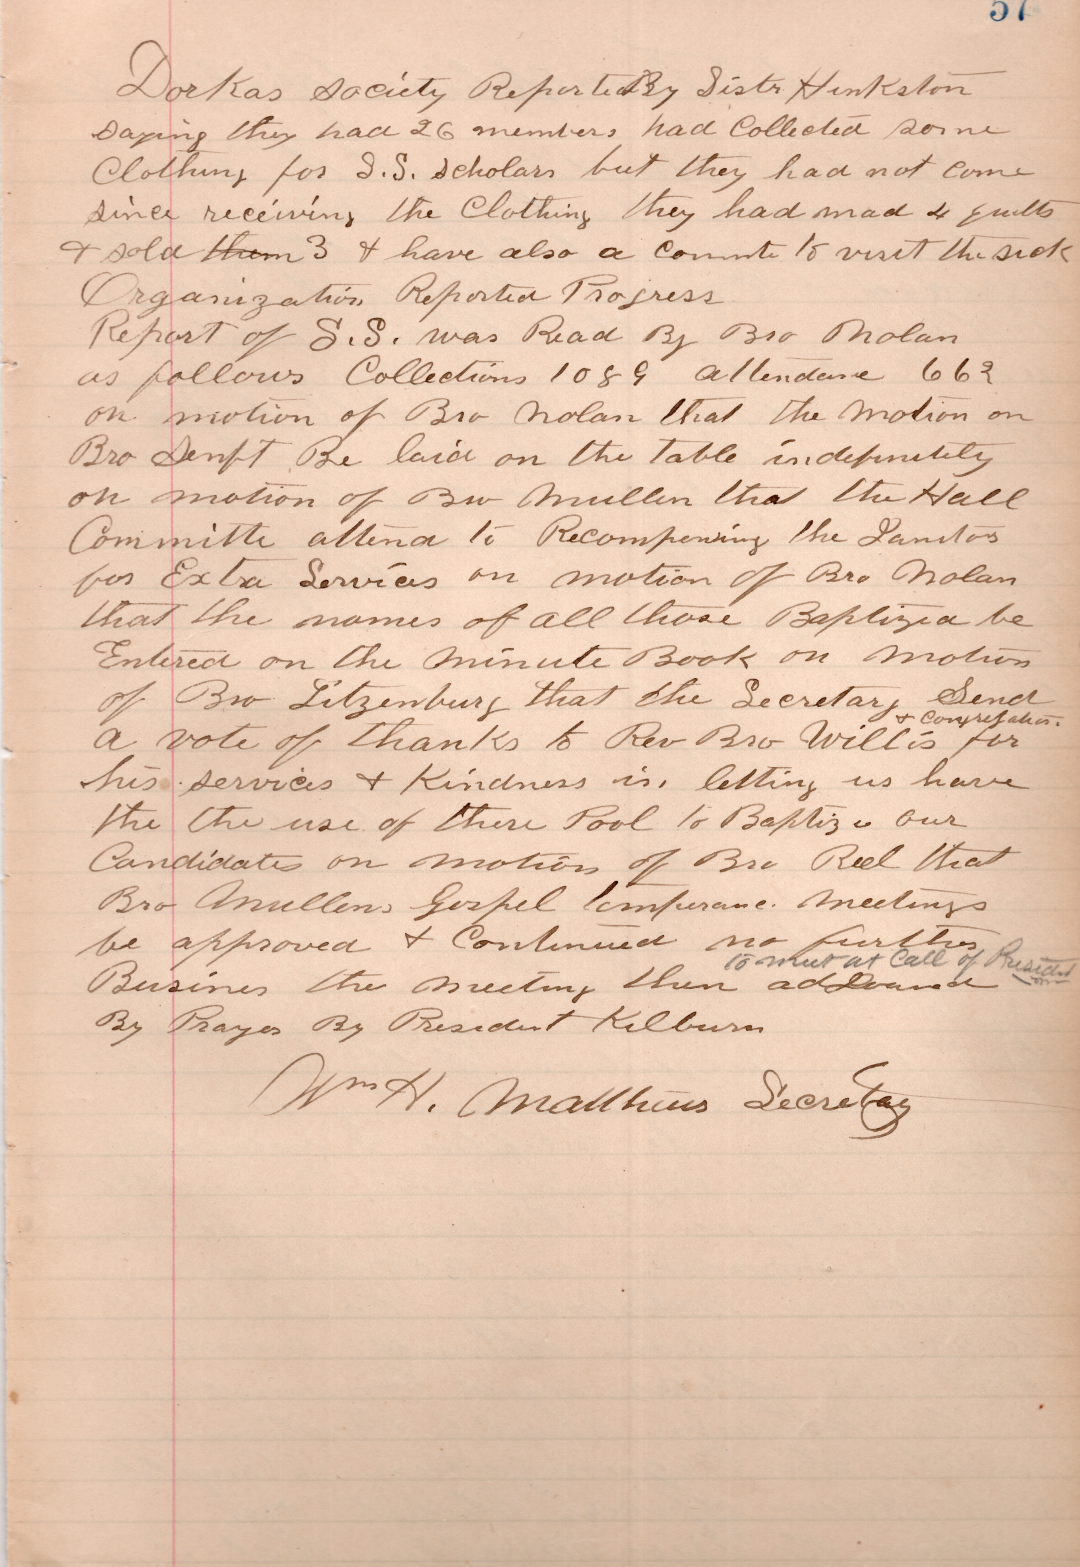 57
Dorkas society Reported By Sistr Hinkston
saying they had 26 members had Collected some
Clothing for S.S. scholars but they had not come
since receiving the Clothing they had mad 4 quilts
& sold them 3 & have also a Commte to visit the sick
Organization Reported Progress
Report of S.S. was Read By Bro Nolan
as follows Collections 1089 attendane 662
on motion of Bro Nolan that the Motion on
Bro Senft Be laid on the table indefinitely
on motion of Bro Mullen that the Hall
Committe attend to Recompensing the Janitor
for Extra Services on motion of Bro Nolan
that the names of all those Baptized be
Entered on the Minute Book on Motion
of Bro Litzenburg that the Secretary Send
& Congregation.
a vote of thanks to Rev Bro Willis for
his services & Kindness in letting us have
the the use of there Pool to Baptize our
Candidates on motion of Bro Reel that
Bro Mullens Gospel temperanc. Meetings
be approved & Continued no further
to meet at Call of President
Business the Meeting then
By Prayer By President Kilburn
Wm H. Matthews Secretay